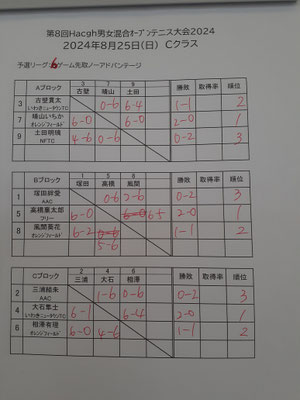 第8回Hacgh男女混合オープンテニス大会2024
2024年8月25日(日) Cクラス
予選リーグ:6ゲーム先取ノーアドバンテージ
Aブロック 3 7 9 勝敗 取得率 順位
古壁 晴山 土田
3 古壁貫太 0-6 6-4 1-1 2
いわきニュータウンTC
7 晴山いちか 6-0 6-0 2-0 1
オレンジフィールド
9 土田明槻 4-6 0-6 0-2 3
NFTC
Bブロック 1 5 8 勝敗 取得率 順位
塚田 高橋 風間
1 塚田絆愛 0-6 2-6 0-2 3
AAC
5 高橋重太郎 6-0 6-0 6-5 2-0 1
フリー
8 風間葵花 6-2 0-6 1-1 2
オレンジフィールド 5-6
Cブロック 2 4 6 勝敗 取得率 順位
三浦 大石 相澤
2 三浦結未 1-6 0-6 0-2 3
AAC
4 大石隼士 6-1 6-4 2-0 1
いわきニュータウンTC
6 相澤有理 6-0 4-6 1-1 2
オレンジフィールド